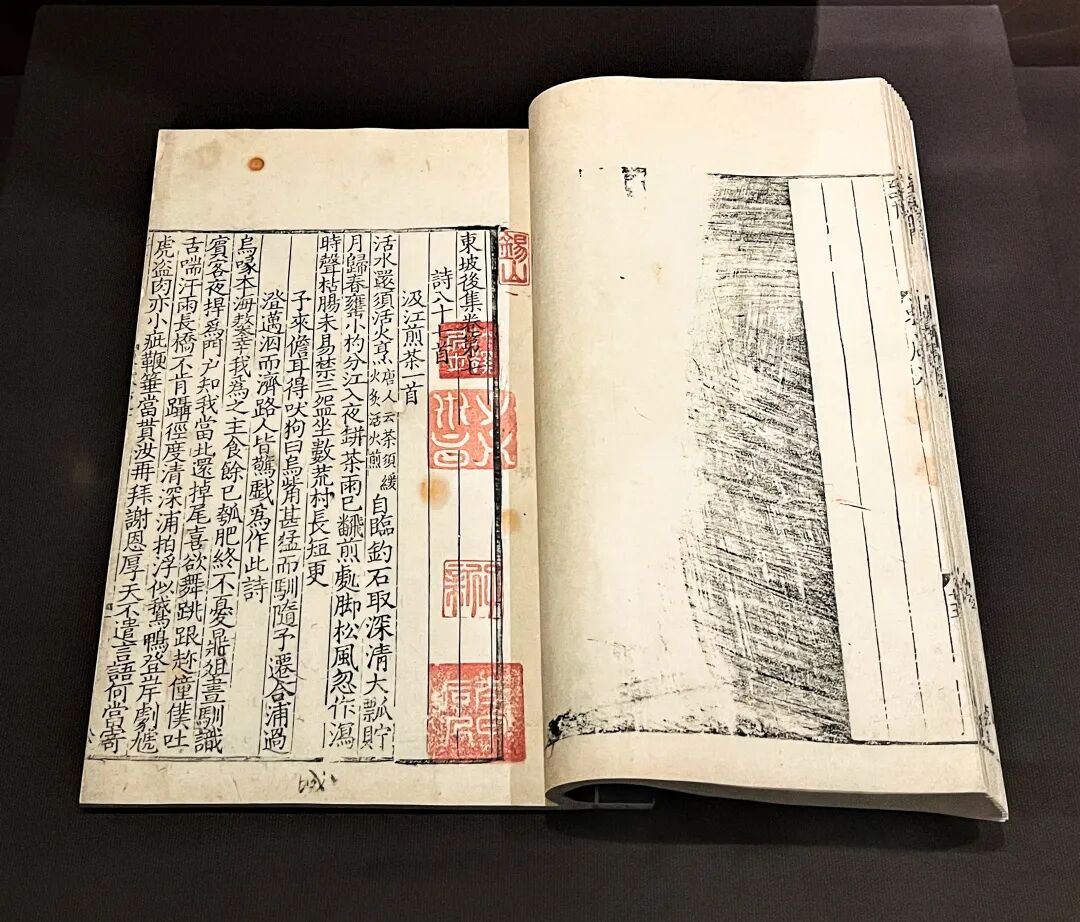 錫山
東坡後集卷第七
詩八十 首
汲江煎茶一首
活水還須活火烹唐人云茶須緩火炙活火煎自臨釣石取深清大瓢貯
月歸春甕小杓分江入夜缾茶雨已翻煎處脚松風忽作瀉
時聲枯腸未易禁三盌坐數荒村長短更
予來儋耳得吠狗曰烏觜甚猛而馴隨予遷合浦過
澄邁泅而濟路人皆驚戲爲作此詩
烏喙本海獒幸我爲之主食餘已瓠肥終不憂鼎俎晝馴識
賓客夜捍爲門户知我當北還掉尾喜欲舞跳踉趂僮僕吐
舌喘汗雨長橋不肯躡徑度清深浦拍浮似鵝鴨登岸劇虓
虎盜肉亦小疵鞭箠當貰汝再拜謝恩厚天不遣言語何當寄